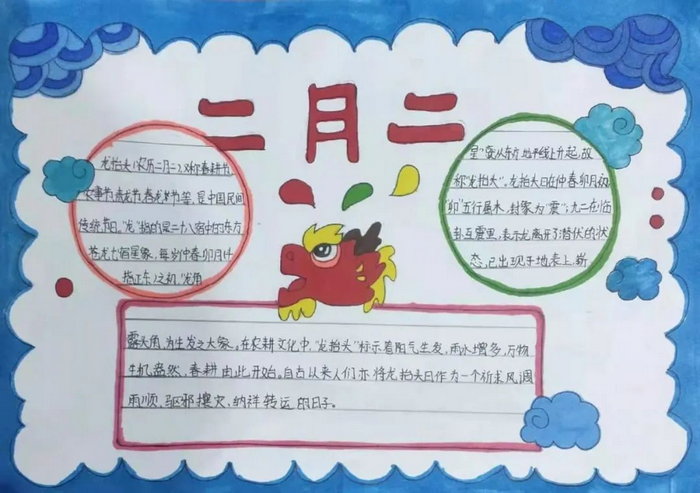 二月二
龙抬头(农历二月二)又称春耕节
农事节青龙节春龙节等,是中国民间
传统节日。"龙"指的是二十八宿中的东方
苍龙七宿星象,每岁仲春卯月(斗
指正东)之初,"龙角
星"便从东方地平线上升起,故
称"龙抬头"。龙抬头日在仲春卯月初
"卯"五行属木,卦象为"震";九二在临
卦互震里,表示龙离开了潜伏的状
态,已出现于地表上,崭
露头角,为生发之大象。在农耕文化中,"龙抬头"标示着阳气生发,雨水增多,万物
生机盎然,春耕由此开始。自古以来人们亦将龙抬头日作为一个祈求风调
雨顺、驱邪攘灾、纳祥转运的日子。